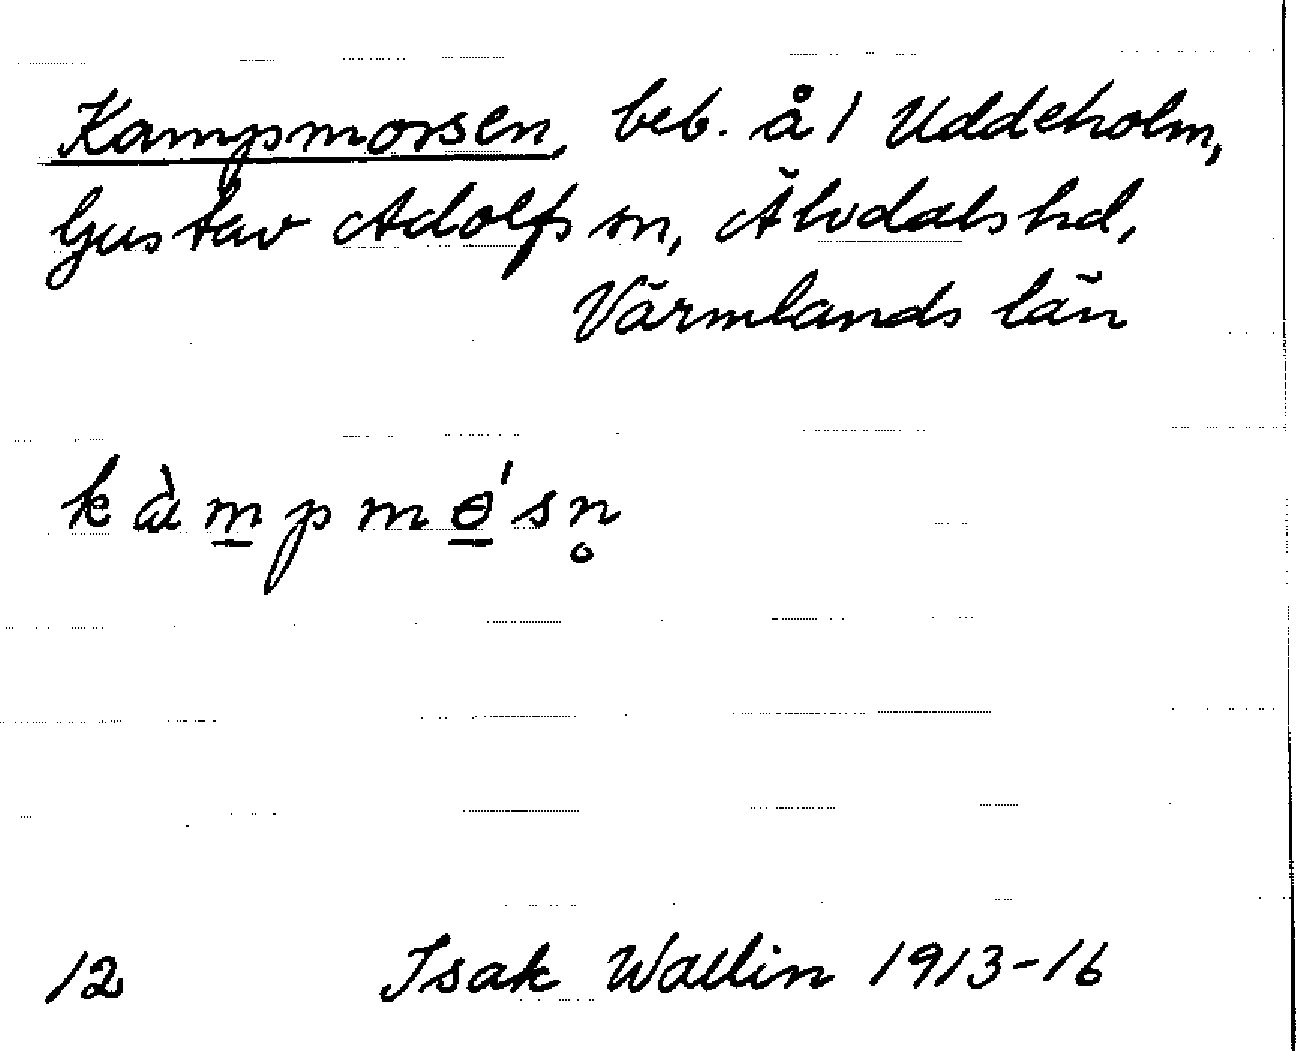 Kampmorsen, beb. å 1 Uddeholm,
Gustav Adolfs sn, Älvdals hd,
Värmlands län
kàm̲pmɵ̲́sn̥
12 Isak Wallin 1913-16